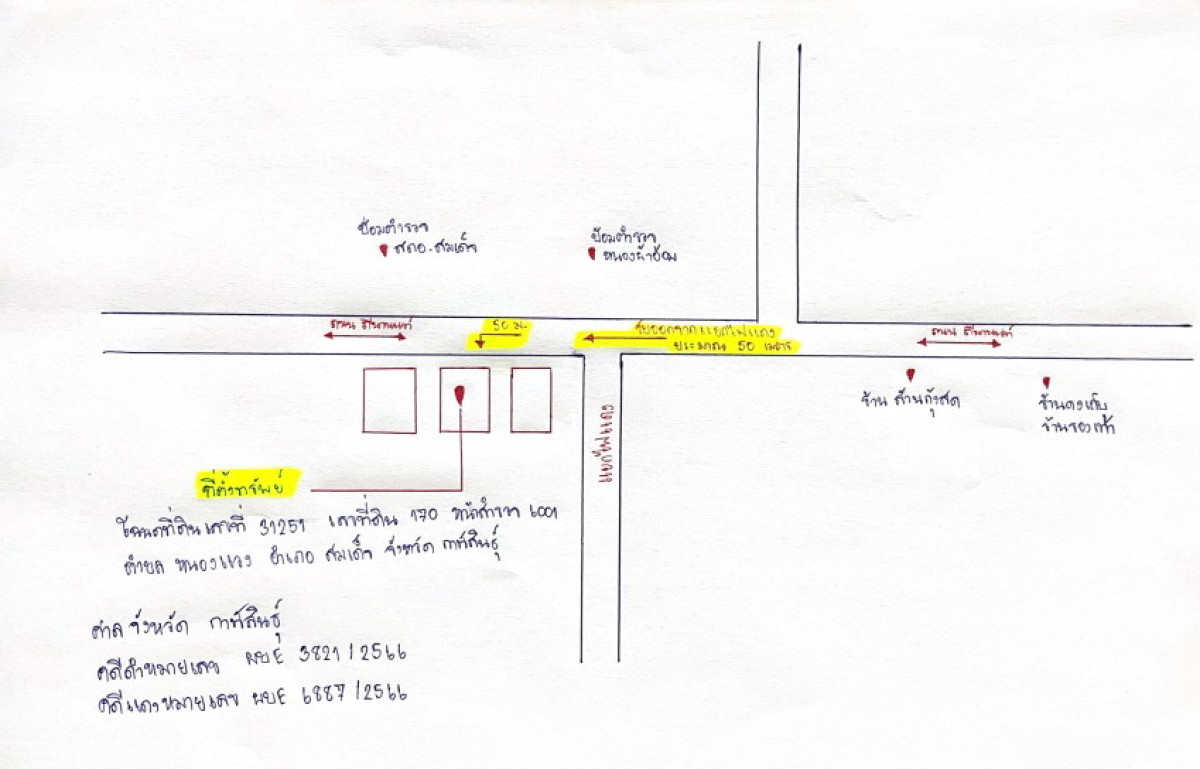 ป้อมตำรวจ
สภอ.สมเด็จ
ป้อมตำรวจ
หนองผ้าอ้อม
ถนน ถีนานนท์
50 ม.
วิ่งออกจากแยกไฟแดง
ประมาณ 50 เมตร
ถนน ถีนานนท์
ร้าน ล้านกุ้งสด
ร้านคงเก็บ
ร้านรองเท้า
แยกไฟแดง
ที่ตั้งทรัพย์
โฉนดที่ดินเลขที่ 31251 เลขที่ดิน 170 หน้าสำรวจ 6001
ตำบล หนองแวง อำเภอ สมเด็จ จังหวัด กาฬสินธุ์
ศาล จังหวัด กาฬสินธุ์
คดีดำหมายเลข ผบE 3821/2566
คดีแดงหมายเลข ผบE 6887/2566